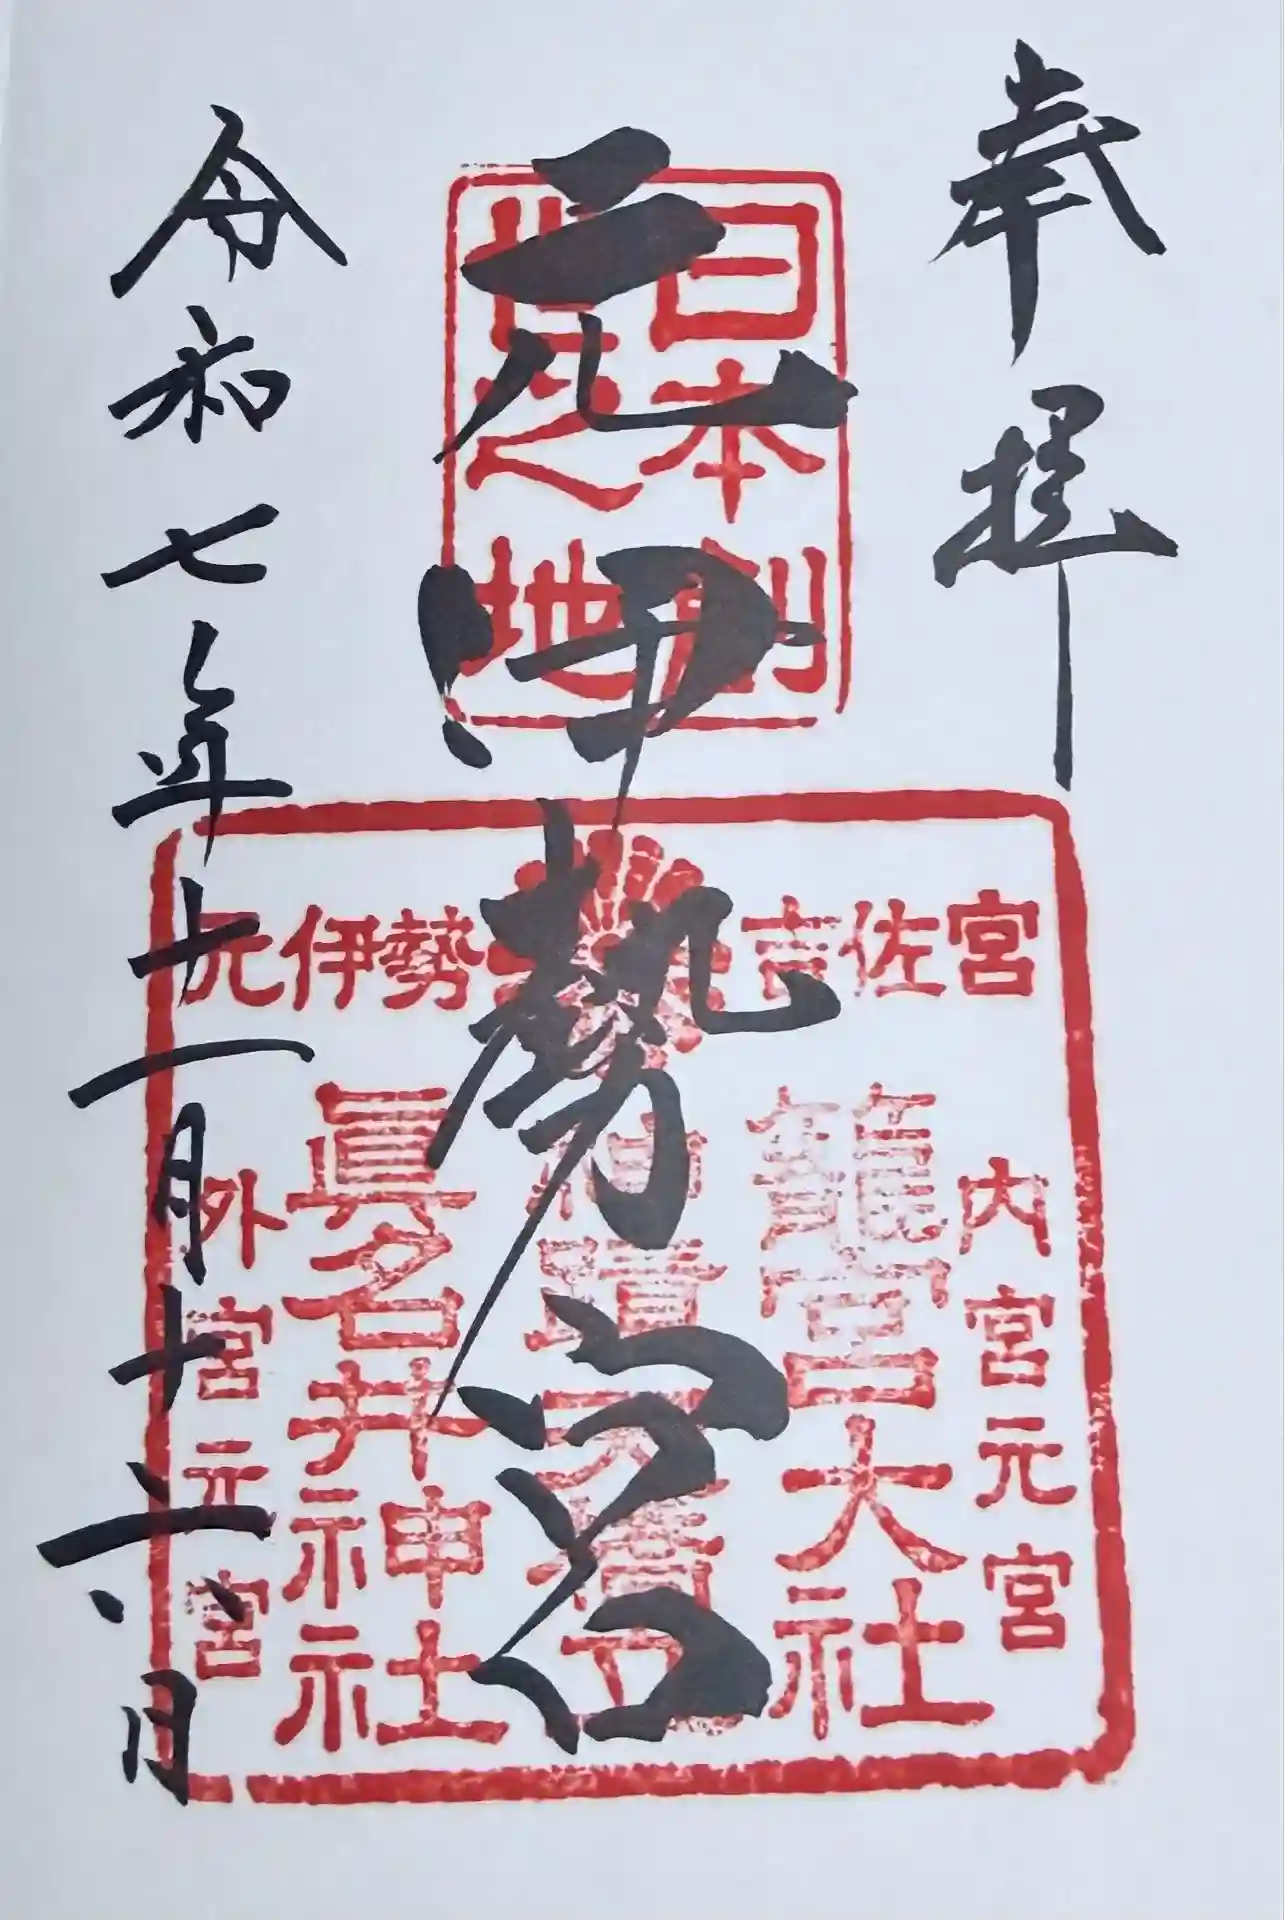 奉拝
元伊勢宮
令和七年十一月十六日
日本創
世之地
元伊勢 吉佐宮
内宮元宮
籠宮大社
橋立
眞名井神社
外宮元宮